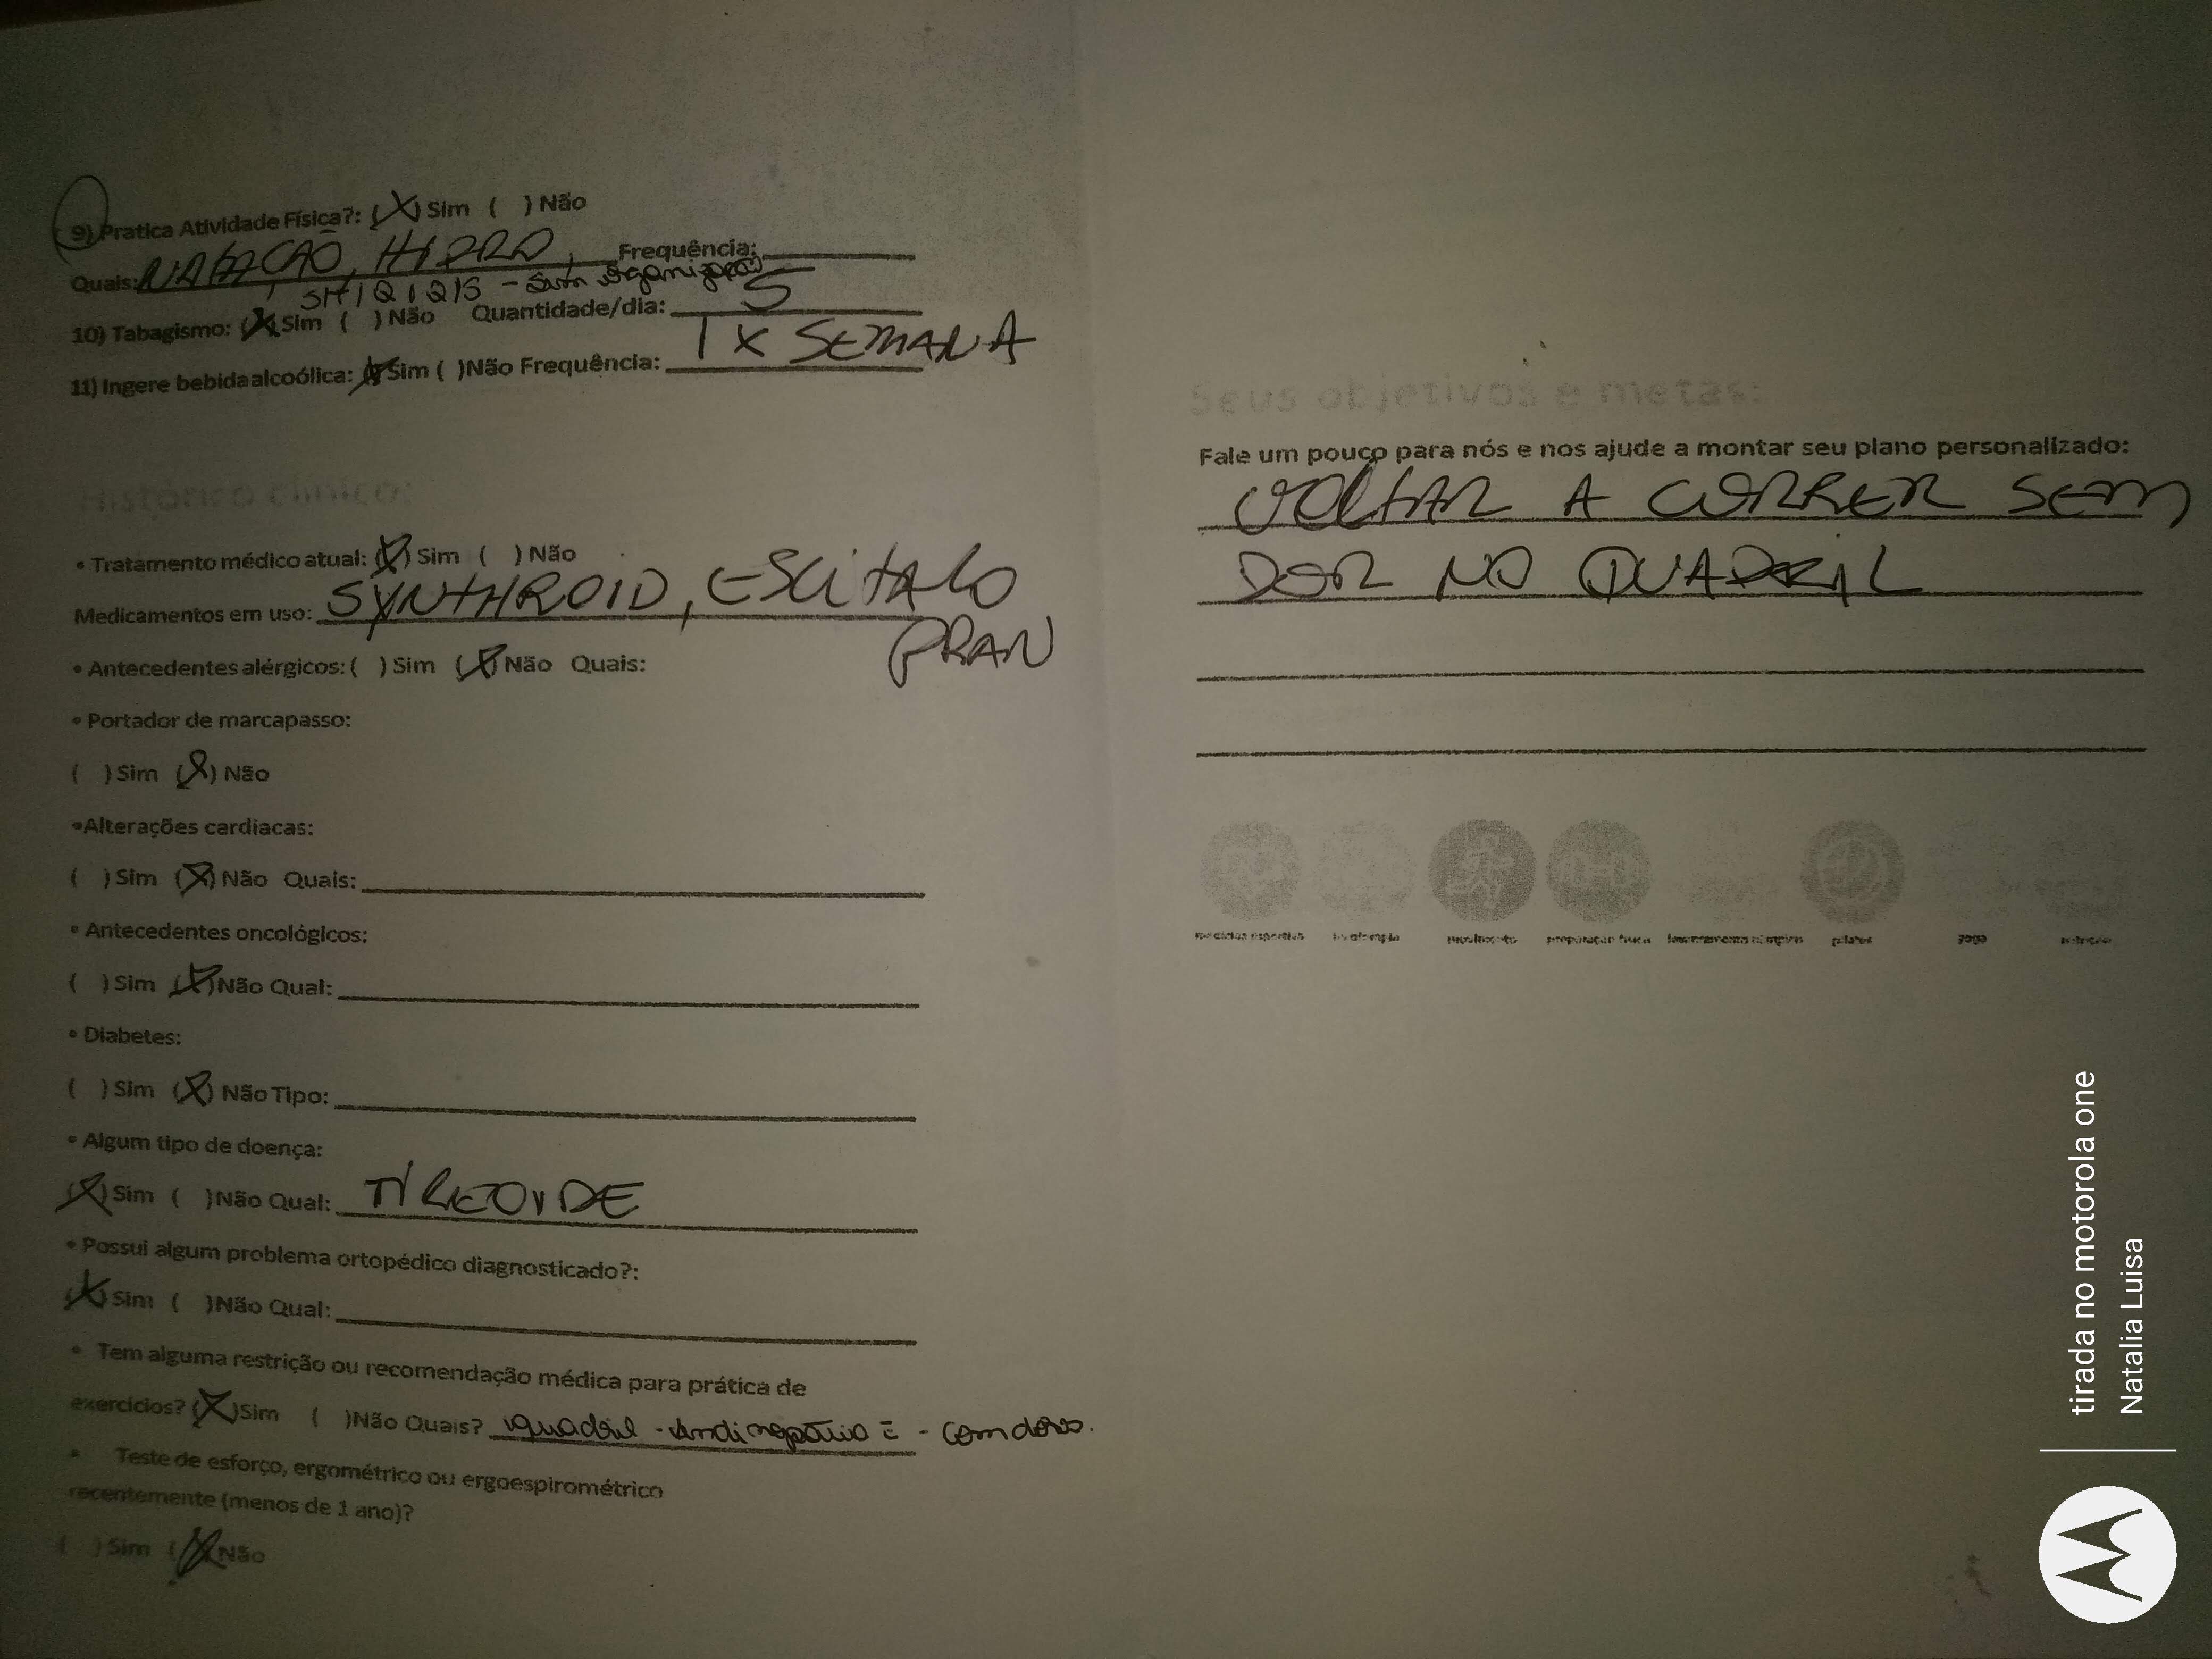 9) Pratica Atividade Física?: (X) Sim ( ) Não
Quais: NATAÇÃO, HIDRO Frequência:
10) Tabagismo: (X) Sim ( ) Não Quantidade/dia: 5
11) Ingere bebida alcoólica: (X) Sim ( ) Não Frequência: 1 X SEMANA
Histórico clínico:
• Tratamento médico atual: (X) Sim ( ) Não
Medicamentos em uso: SYNTHROID, ESCITALO
(PRAN)
• Antecedentes alérgicos: ( ) Sim (X) Não Quais:
• Portador de marcapasso:
( ) Sim (X) Não
• Alterações cardiacas:
( ) Sim (X) Não Quais:
• Antecedentes oncológicos:
( ) Sim (X) Não Qual:
• Diabetes:
( ) Sim (X) Não Tipo:
• Algum tipo de doença:
(X) Sim ( ) Não Qual: TIREOIDE
• Possui algum problema ortopédico diagnosticado?:
(X) Sim ( ) Não Qual:
• Tem alguma restrição ou recomendação médica para prática de
exercícios? (X) Sim ( ) Não Quais? quadril -
• Teste de esforço, ergométrico ou ergoespirométrico
recentemente (menos de 1 ano)?
( ) Sim (X) Não
Seus objetivos e metas:
Fale um pouco para nós e nos ajude a montar seu plano personalizado:
VOLTAR A CORRER SEM
DOR NO QUADRIL
pilates
yoga
tirada no motorola one
Natalia Luisa